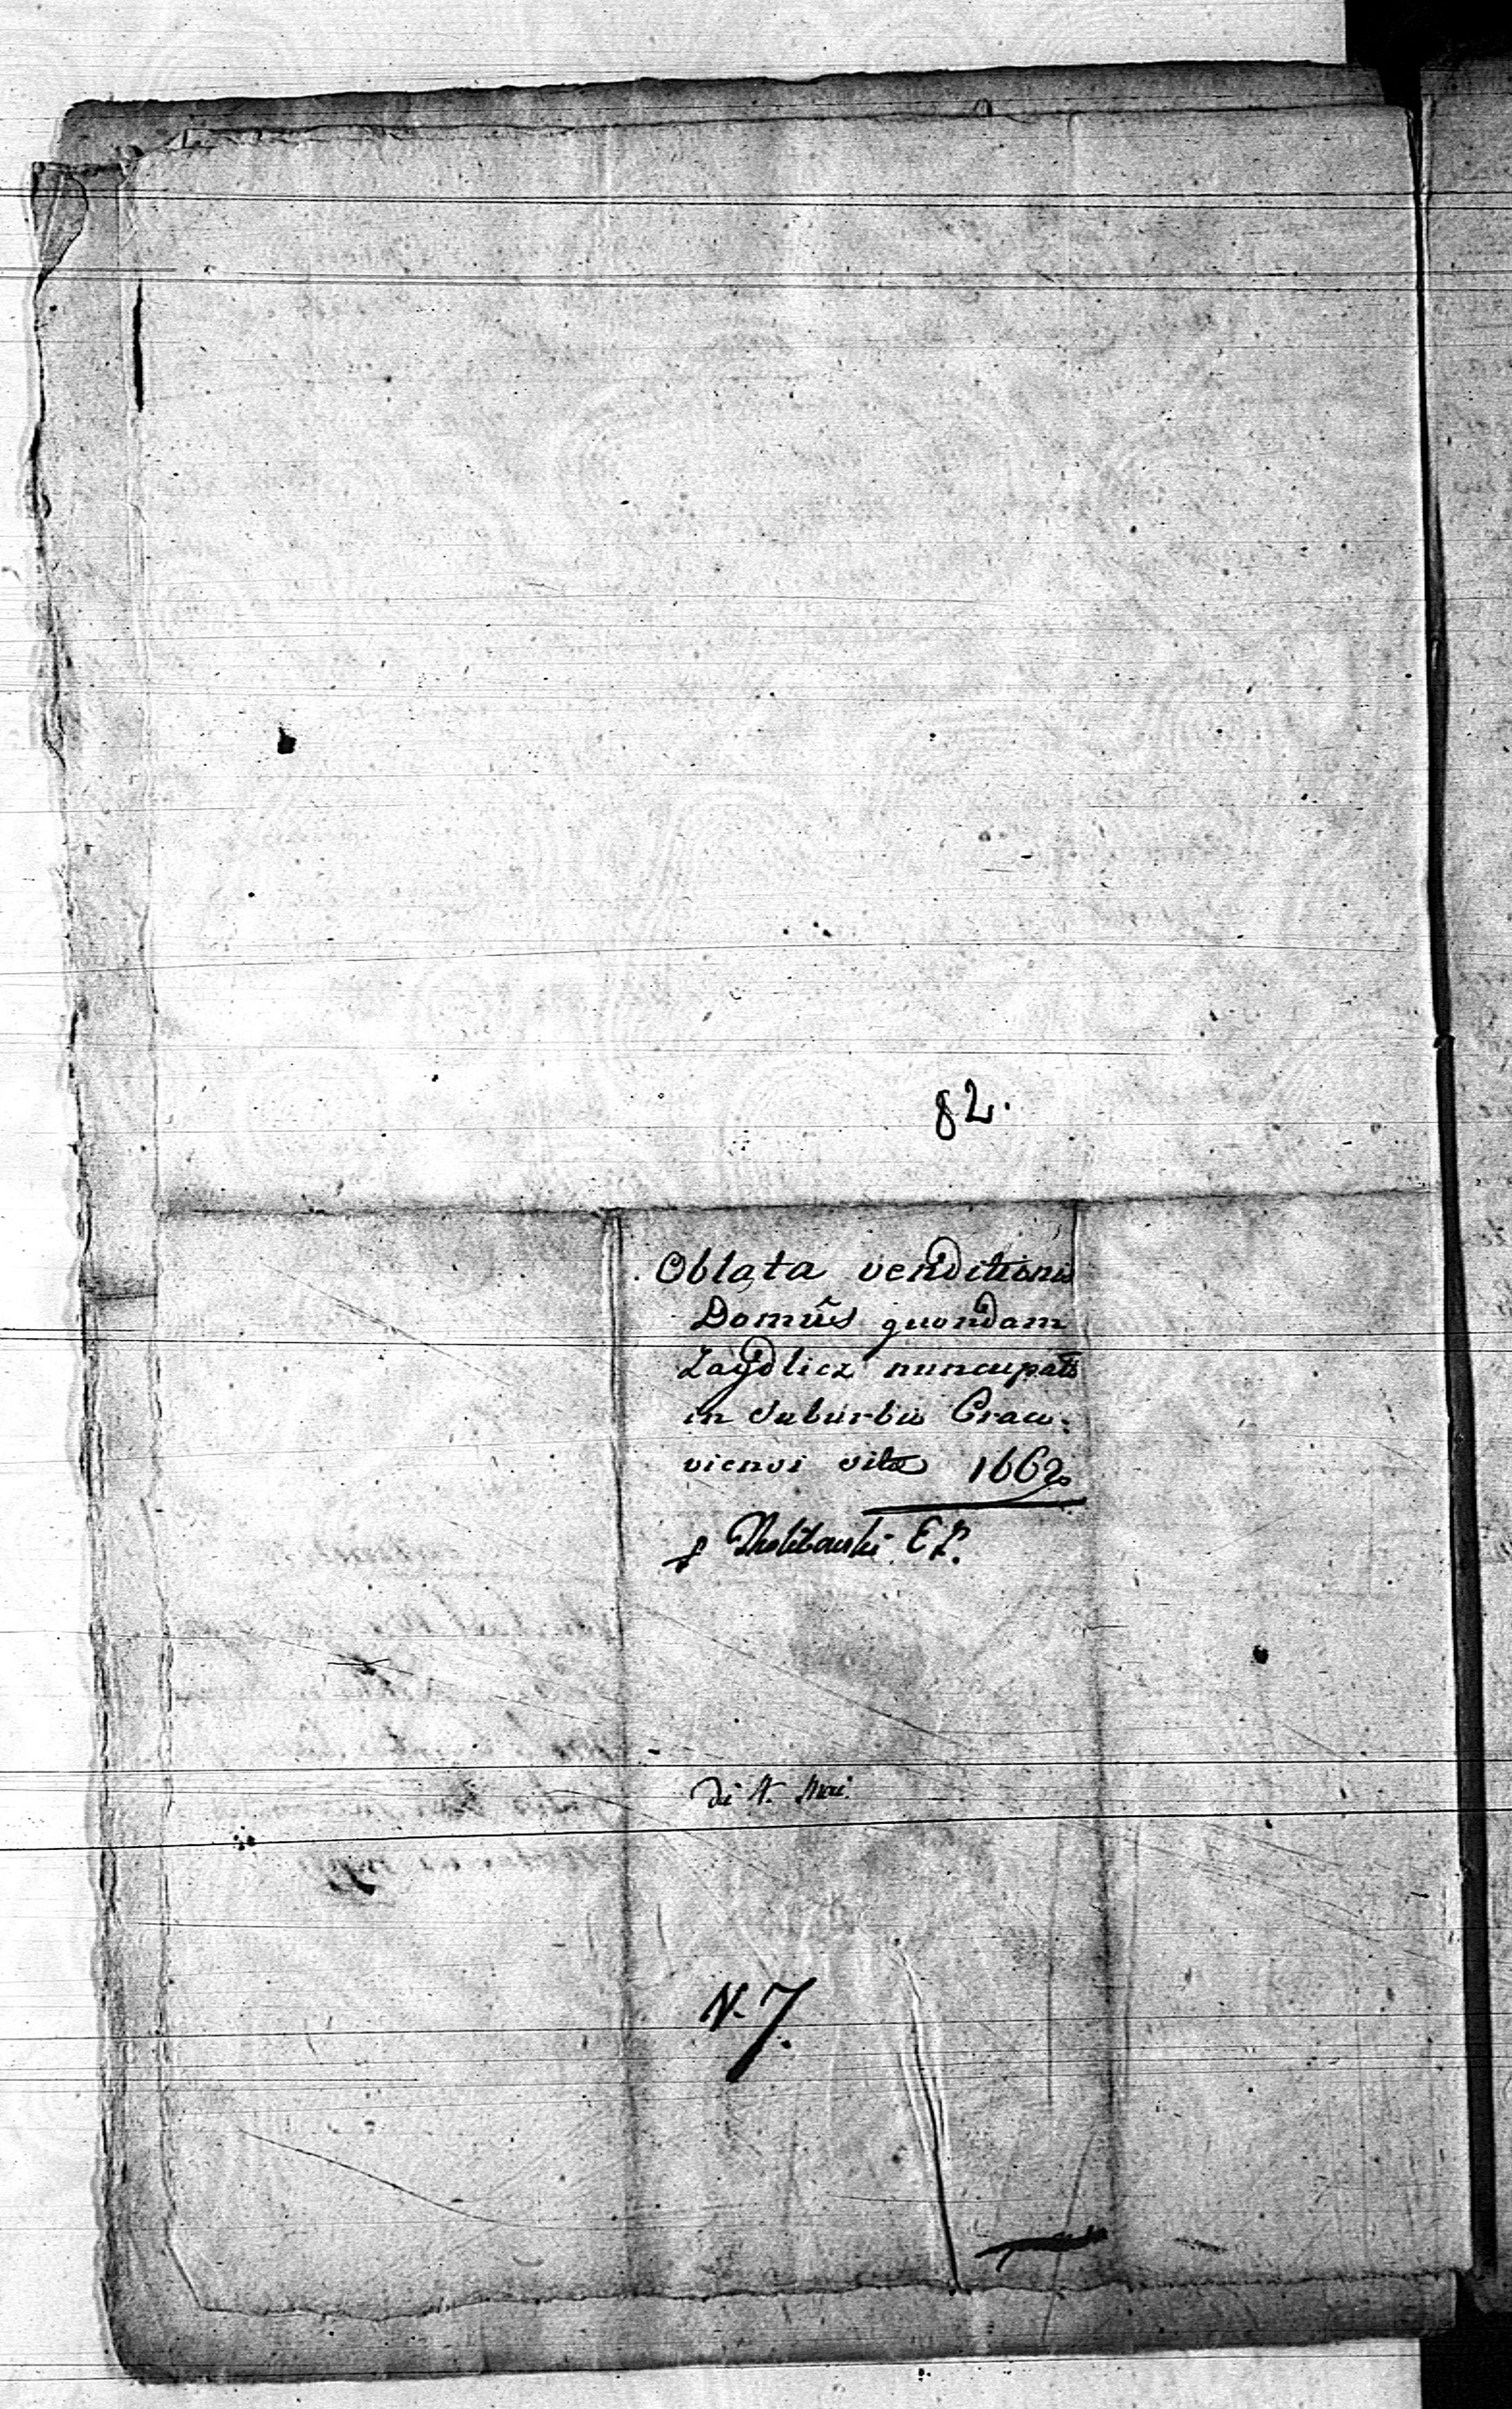 82.
Oblata venditionis
Domûs quondam
Zaydlicz nuncupatæ
in Suburbio Craco:
viensi sitæ 1662
E. P.
di 4. Mai.
N. 7.